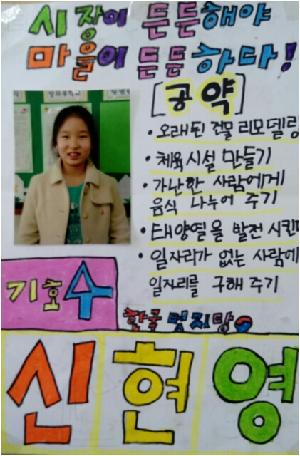 시장이 튼튼해야
마을이 튼튼하다!
[공약]
• 오래된 건물 리모델링
• 체육시설 만들기
• 가난한 사람에게
음식 나누어 주기
• 태양열을 발전 시킨
• 일자리가 없는 사람에
일자리를 구해 주기
기호 수
한국 멋지당
신현영